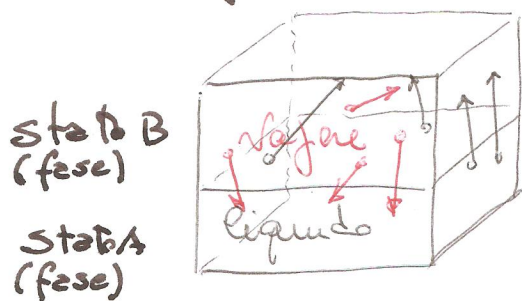 stato B
(fase)
Vapore
liquido
stato A
(fase)